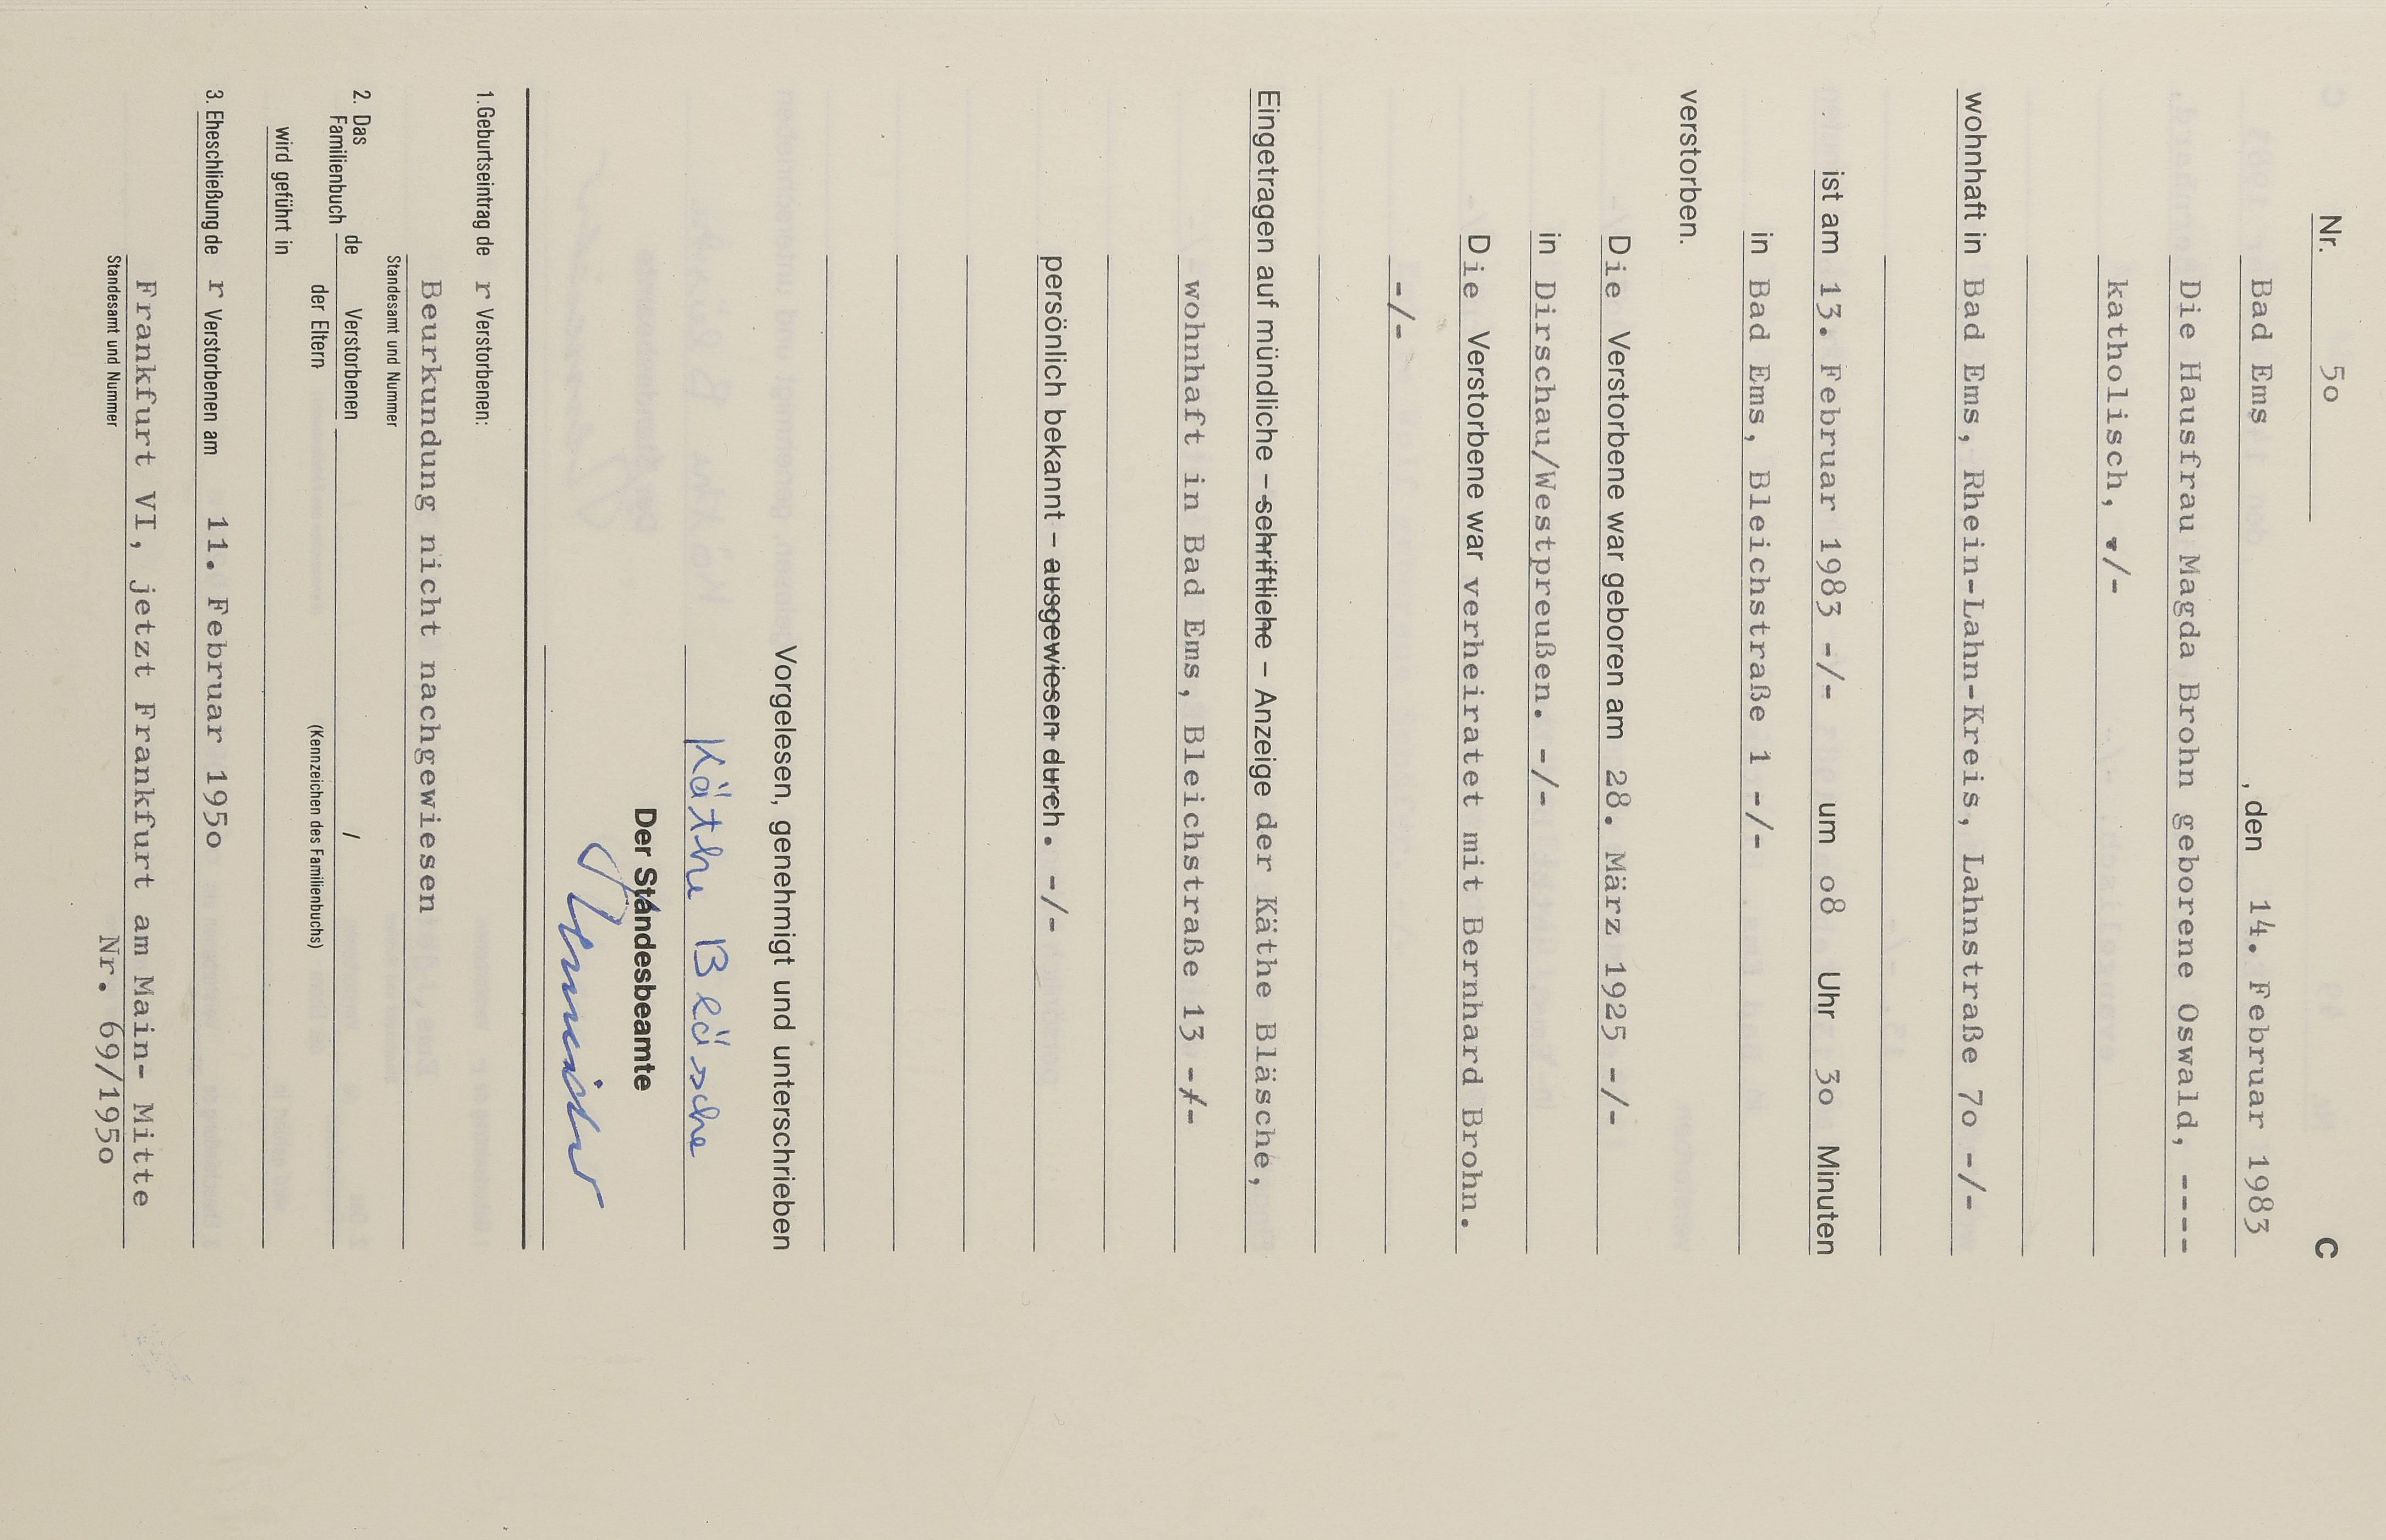 Nr. 5o C
Bad Ems , den 14. Februar 1983
Die Hausfrau Magda Brohn geborene Oswald, ----
katholisch, -/-
wohnhaft in Bad Ems, Rhein-Lahn-Kreis, Lahnstraße 7o -/-
ist am 13. Februar 1983 -/- um o8 Uhr 3o Minuten
in Bad Ems, Bleichstraße 1 -/-
verstorben.
Die Verstorbene war geboren am 28. März 1925 -/-
in Dirschau/Westpreußen. -/-
Die Verstorbene war verheiratet mit Bernhard Brohn.
-/-
Eingetragen auf mündliche – schriftliche – Anzeige der Käthe Bläsche,
wohnhaft in Bad Ems, Bleichstraße 13 -/-
persönlich bekannt – ausgewiesen durch. -/-
Vorgelesen, genehmigt und unterschrieben
Käthe Bläsche
Der Standesbeamte
1. Geburtseintrag de r Verstorbenen:
Beurkundung nicht nachgewiesen
Standesamt und Nummer
2. Das Familienbuch de Verstorbenen /
der Eltern (Kennzeichen des Familienbuchs)
wird geführt in
3. Eheschließung de r Verstorbenen am 11. Februar 195o
Frankfurt VI, jetzt Frankfurt am Main- Mitte
Standesamt und Nummer Nr. 69/195o